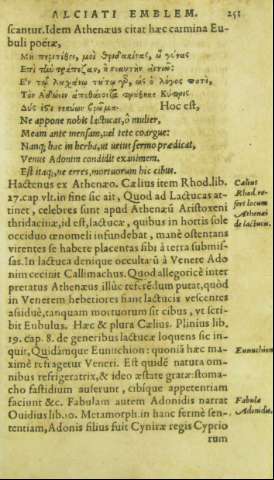 ALCIATI EMBLEM. 251
scantur. Idem Athenæus citat hæc carmina Eu-
buli poëtæ,
Hoc est,
Ne appone nobis lactucas, ô mulier,
Meam ante mensam, vel tete coargue:
Nanq; hac in herba, ut vetus sermo prædicat,
Venus Adonim condidit exanimem.
Est itaq;, ne erres, mortuorum hic cibus.
Hactenus ex Athenæo. Cælius item Rhod. lib.
27. cap. vlt. in fine sic ait, Quod ad Lactucas at-
tinet, celebres sunt apud Athenæũ Aristoxeni
thridacinæ, id est, lactucæ, quibus in hortis sole
occiduo œnomeli infundebat, manè ostentans
virentes se habere placentas sibi à terra submis-
sas. In lactuca denique occultatũ à Venere Ado
nim cecinit Callimachus. Quod allegoricè inter
pretatus Athenæus illuc referẽdum putat, quòd
in Venerem hebetiores fiant lactucis vescentes
assiduè, tanquam mortuorum sit cibus, vt scri-
bit Eubulus. Hæc & plura Cælius. Plinius lib.
19. cap. 8. de generibus lactucæ loquens sic in-
quit, Quidamque Eunuchion: quoniã hæc ma-
ximè refragetur Veneri. Est quidẽ natura om-
nibus refrigeratrix, & ideo æstate gratæ: stoma-
cho fastidium auferunt, cibíque appetentiam
faciunt &c. Fabulam autem Adonidis narrat
Ouidius lib. 10. Metamorph. in hanc fermè sen-
tentiam, Adonis filius fuit Cyniræ regis Cyprio
rum
Cælius
Rhod. re-
fert locum
Athenæi
de lactucu.
Eunuchion
Fabula
Adonidis.